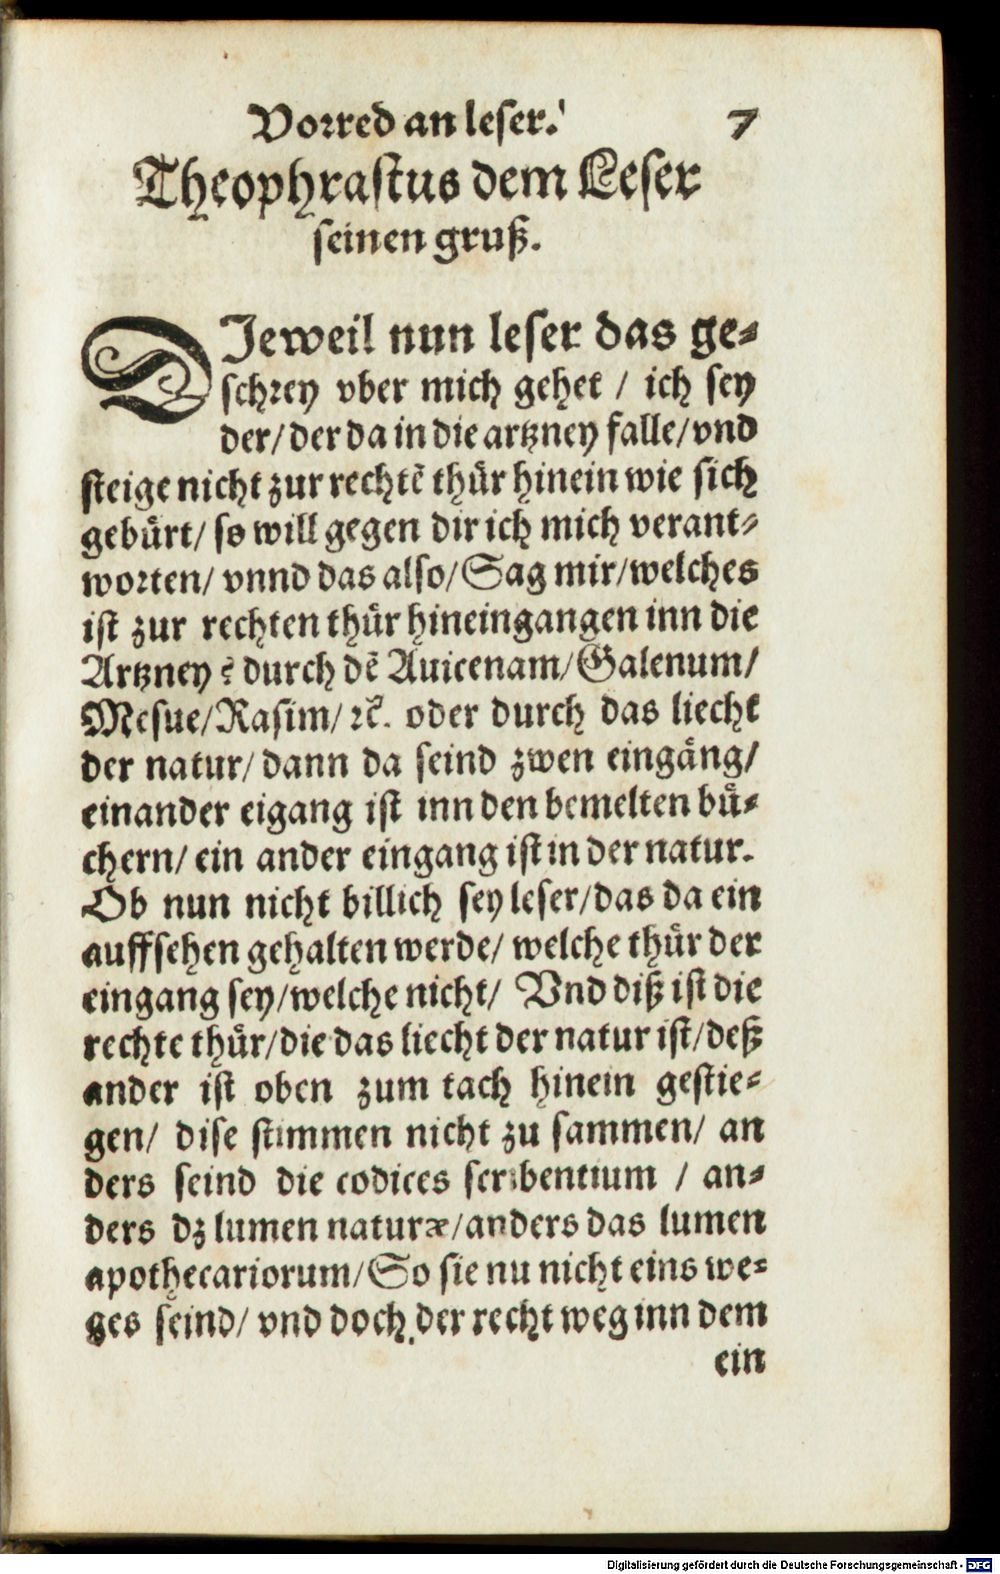 Vorred an leser. 7
Theophrastus dem Leser
seinen gruß.
DJeweil nun leser das ge⸗
schrey vber mich gehet / ich sey
der/ der da in die artzney falle/ vnd
steige nicht zur rechtẽ thuͤr hinein wie sich
gebuͤrt/ so will gegen dir ich mich verant⸗
worten/ vnnd das also/ Sag mir/ welches
ist zur rechten thuͤr hineingangen inn die
Artzney? durch dẽ Auicenam/ Galenum/
Mesue/ Rasim/ ꝛc̃. oder durch das liecht
der natur/ dann da seind zwen eingaͤng/
einander eigang ist inn den bemelten buͤ⸗
chern/ ein ander eingang ist in der natur.
Ob nun nicht billich sey leser/ das da ein
auffsehen gehalten werde/ welche thuͤr der
eingang sey/ welche nicht/ Vnd diß ist die
rechte thuͤr/ die das liecht der natur ist/ deß
ander ist oben zum tach hinein gestie⸗
gen/ dise stimmen nicht zu sammen/ an
ders seind die codices scribentium / an⸗
ders dz lumen naturæ/ anders das lumen
apothecariorum/ So sie nu nicht eins we⸗
ges seind/ vnd doch der recht weg inn dem
ein
Digitalisierung gefördert durch die Deutsche Forschungsgemeinschaft - DFG